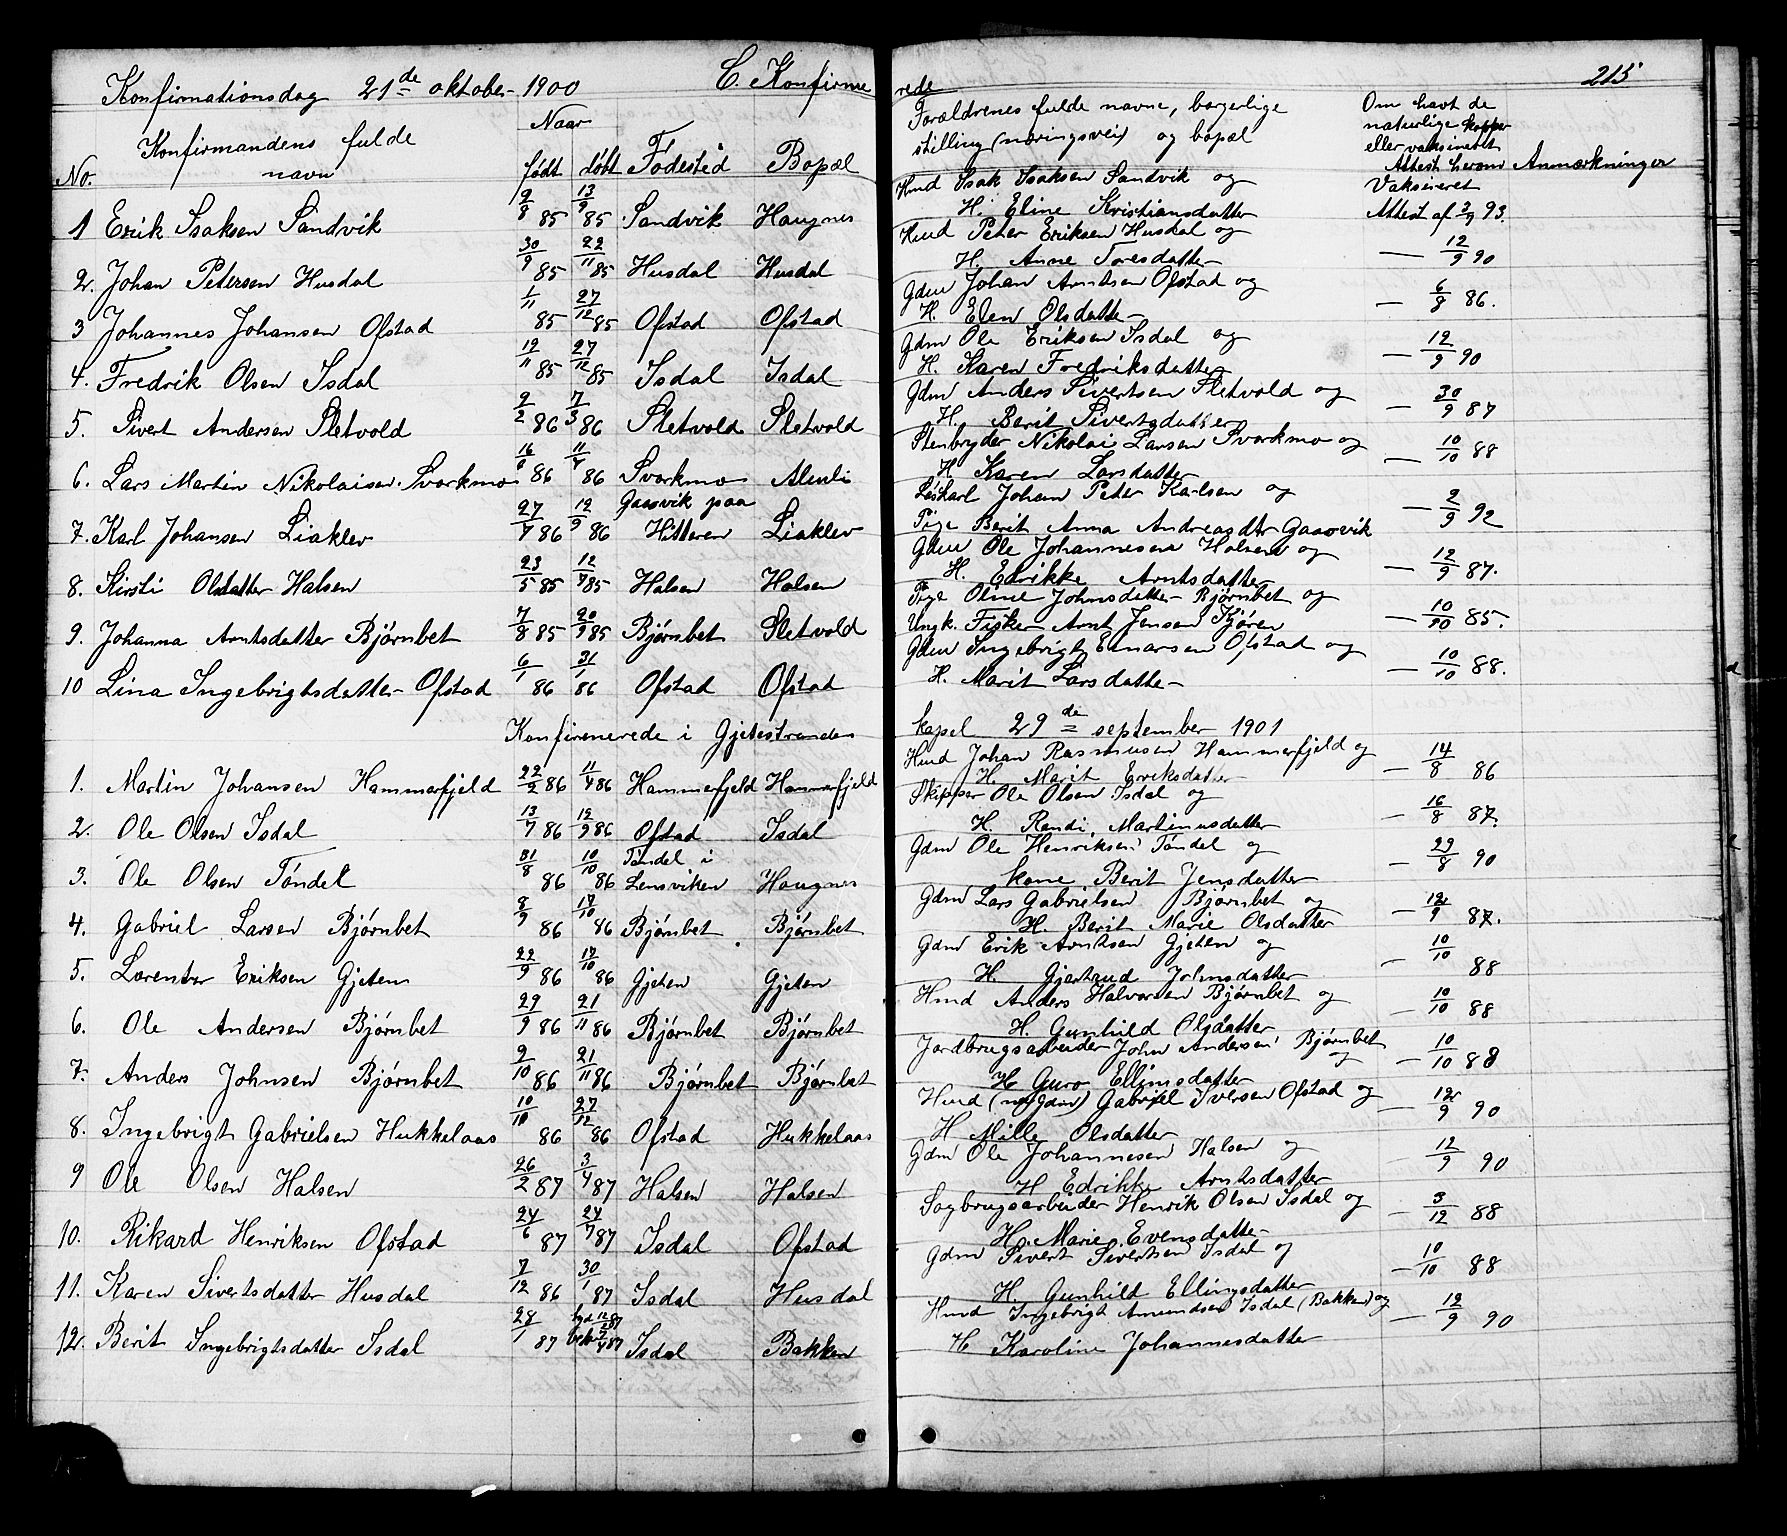 215
Konfirmationsdag 21de oktober 1900 C. Konfirmerede
No. Konfirmandens fulde navn Naar født døbt Fødested Bopæl Forældrenes fulde navne, borgerlige stilling (næringsvei) og bopæl Om havt de naturlige kopper eller vaksineret Attest herom Anmærkninger
1 Erik Isaksen Sandvik 9/8 85 13/9 85 Sandvik Haugnes Hmd Isak Isaksen Sandvik og Vaksineret
H. Eline Kristiansdatter Attest af 2/9 93.
2. Johan Petersen Husdal 30/9 85 22/11 85 Husdal Husdal Hmd Peter Eriksen Husdal og
H. Anne Toresdatter — 12/9 90
3 Johannes Johansen Ofstad 1/11 85 27/12 85 Ofstad Ofstad Gdm Johan Arntsen Ofstad og
H. Elen Olsdatter — 6/8 86.
4. Fredrik Olsen Isdal 19/11 85 27/12 85 Isdal Isdal Gdm Ole Eriksen Isdal og
H. Karen Fredriksdatter — 12/9 90
5. Sivert Andersen Sletvold 9/2 86 7/3 86 Sletvold Sletvold Gdm Anders Sivertsen Sletvold og
H. Berit Sivertsdatter — 30/9 87
6. Lars Martin Nikolaisen Svorkmo 86 11/4 86 Svorkmo Alenli Stenbryder Nikolai Larsen Svorkmo og
H. Karen Larsdatter — 10/10 88
7. Karl Johansen Liaklev 27/7 86 12/9 86 Gaasvik paa Hitteren Liaklev Løskarl Johan Peter Karlsen og
Pige Berit Anna Andreasdtr Gaasvik — 2/9 92
8. Kirsti Olsdatter Halsen 23/5 85 12/7 85 Halsen Halsen Gdm Ole Johannesen Halsen og
H. Edrikke Arntsdatter — 12/9 87.
9. Johanna Arntsdatter Bjørnbet 7/8 85 20/9 85 Bjørnbet Sletvold Pige Oline Johnsdatter Bjørnbet og
Ungk. Fisker Arnt Jensen Kjøren — 10/10 85.
10 Lina Ingebrigtsdatter Ofstad 6/1 86 31/1 86 Ofstad Ofstad Gdm Ingebrigt Einarsen Ofstad og
H. Marit Larsdatter — 10/10 88.
Konfirmerede i Gjetestranden kapel 29de september 1901
1. Martin Johansen Hammerfjeld 22/2 86 11/4 86 Hammerfjeld Hammerfjeld Hmd Johan Rasmusen Hammerfjeld og
H. Marit Eriksdatter — 14/8 86
2. Ole Olsen Isdal 13/7 86 12/9 86 Ofstad Isdal Skipper Ole Olsen Isdal og
H. Randi Martinusdatter — 16/8 87.
3. Ole Olsen Tøndel 31/8 86 10/10 86 Tøndel i Lensviken Haugnes Gdm Ole Henriksen Tøndel og
kone Berit Jensdatter — 29/8 90
4. Gabriel Larsen Bjørnbet 8/9 86 17/10 86 Bjørnbet Bjørnbet Gdm Lars Gabrielsen Bjørnbet og
H. Berit Marie Olsdatter — 12/9 87.
5. Lorents Eriksen Gjeten 22/9 86 17/10 86 Gjeten Gjeten Gdm Erik Arntsen Gjeten og
H. Gjertrud Johnsdatter — 10/10 88
6. Ole Andersen Bjørnbet 29/9 86 21/11 86 Bjørnbet Bjørnbet Hmd Anders Halvorsen Bjørnbet og
H. Gunhild Olsdatter — 10/10 88
7. Anders Johnsen Bjørnbet 9/10 86 21/11 86 Bjørnbet Bjørnbet Jordbrugsarbeider John Andersen Bjørnbet og
H Guro Ellingsdatter — 10/10 88
8. Ingebrigt Gabrielsen Hukkelaas 10/10 86 27/12 86 Ofstad Hukkelaas Hmd (nu Gdm) Gabriel Iversen Ofstad og
H Mille Olsdatter — 12/9 90
9 Ole Olsen Halsen 26/2 87 3/4 87 Halsen Halsen Gdm Ole Johannesen Halsen og
H Edrikke Arntsdatter — 12/9 90
10. Rikard Henriksen Ofstad 24/6 87 24/7 87 Isdal Ofstad Sagbrugsarbeider Henrik Olsen Isdal og
H. Marie Evensdatter — 3/12 88
11. Karen Sivertsdatter Husdal 7/12 86 30/1 87 Isdal Husdal Gdm Sivert Sivertsen Isdal og
H. Gunhild Ellingsdatter — 10/10 88
12. Berit Ingebrigtsdatter Isdal 28/1 87 Isdal Bakken Hmd Ingebrigt Amundsen Isdal (Bakken) og
H Karoline Johannesdatter — 12/9 90